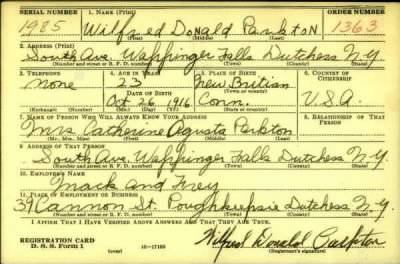 SERIAL NUMBER 1. NAME (Print) ORDER NUMBER
1985 Wilfred Donald Parkton 1363
(First) (Middle) (Last)
2. ADDRESS (Print)
South Ave. Wappinger Falls Dutchess N.Y.
(Number and street or R. F. D. number) (Town) (County) (State)
3. TELEPHONE 4. AGE IN YEARS 5. PLACE OF BIRTH 6. COUNTRY OF CITIZENSHIP
None New Britian
DATE OF BIRTH
Oct 26 1916 Conn. U.S.A.
(Exchange) (Number) (Mo.) (Day) (Yr.) (State or country)
7. NAME OF PERSON WHO WILL ALWAYS KNOW YOUR ADDRESS 8. RELATIONSHIP OF THAT PERSON
Mrs Catherine Agusta Parkton
(Mr., Mrs., Miss) (First) (Middle) (Last)
9. ADDRESS OF THAT PERSON
South Ave. Wappinger Falls Dutchess N.Y.
(Number and street or R. F. D. number) (Town) (County) (State)
10. EMPLOYER'S NAME
Mack and
11. PLACE OF EMPLOYMENT OR BUSINESS
39 Cannon St. Poughkeepsie Dutchess N.Y.
(Number and street or R. F. D. number) (Town) (County) (State)
I AFFIRM THAT I HAVE VERIFIED ABOVE ANSWERS AND THAT THEY ARE TRUE.
REGISTRATION CARD
D. S. S. Form 1 (over) 16-17105 Wilfred Donald Parkton
(Registrant's signature)